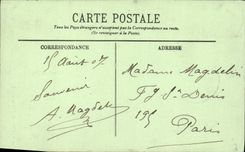 CARTE POSTALE
Tous les Pays étrangers n'acceptent pas la Correspondance au recto.
(Se renseigner à la Poste)
CORRESPONDANCE
ADRESSE
15 Aout 07
Souvenir
A. Magdel
Madame Magdelin
Fg St Denis
195
Paris